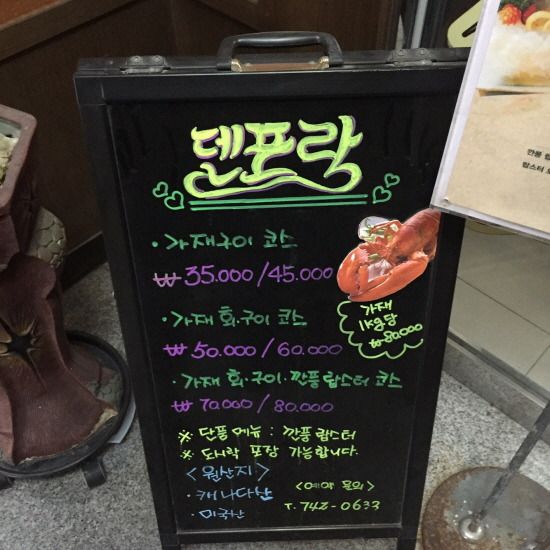 덴포락
· 가재구이 코스
₩ 35.000 / 45.000
· 가재 회.구이 코스
₩ 50.000 / 60.000
· 가재 회.구이.깐풍랍스터 코스
₩ 70.000 / 80.000
가재
1kg당
₩80.000
※ 단품 메뉴 : 깐풍랍스터
※ 도시락 포장 가능합니다.
<원산지>
· 캐나다산
· 미국산
<예약 문의>
T. 742-0633
깐풍 랍
랍스터 요